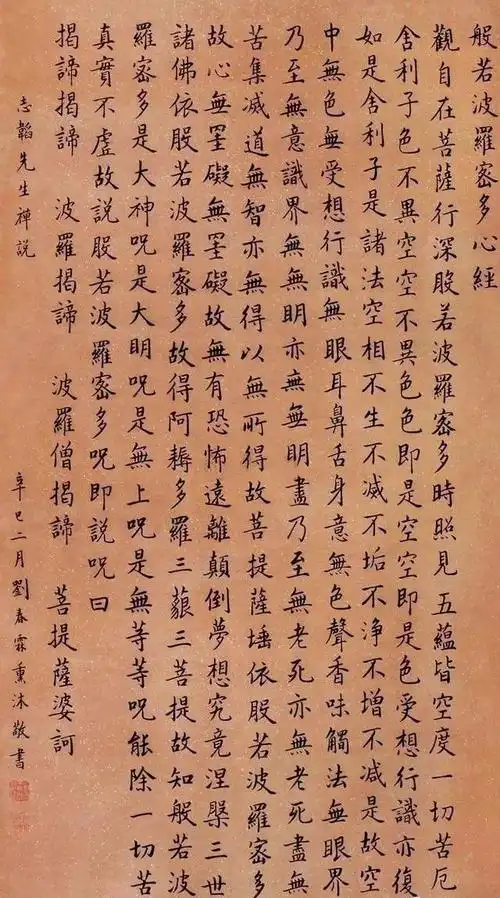 般若波羅密多心經
觀自在菩薩行深般若波羅密多時照見五蘊皆空度一切苦厄
舍利子色不異空空不異色色即是空空即是色受想行識亦復
如是舍利子是諸法空相不生不滅不垢不淨不增不減是故空
中無色無受想行識無眼耳鼻舌身意無色聲香味觸法無眼界
乃至無意識界無無明亦無無明盡乃至無老死亦無老死盡無
苦集滅道無智亦無得以無所得故菩提薩埵依般若波羅密多
故心無罣礙無罣礙故無有恐怖遠離顛倒夢想究竟涅槃三世
諸佛依般若波羅密多故得阿耨多羅三藐三菩提故知般若波
羅密多是大神呪是大明呪是無上呪是無等等呪能除一切苦
真實不虛故説般若波羅密多呪即説呪曰
揭諦揭諦 波羅揭諦 波羅僧揭諦 菩提薩婆訶
志韜先生禪説
辛巳二月劉春霖熏沐敬書